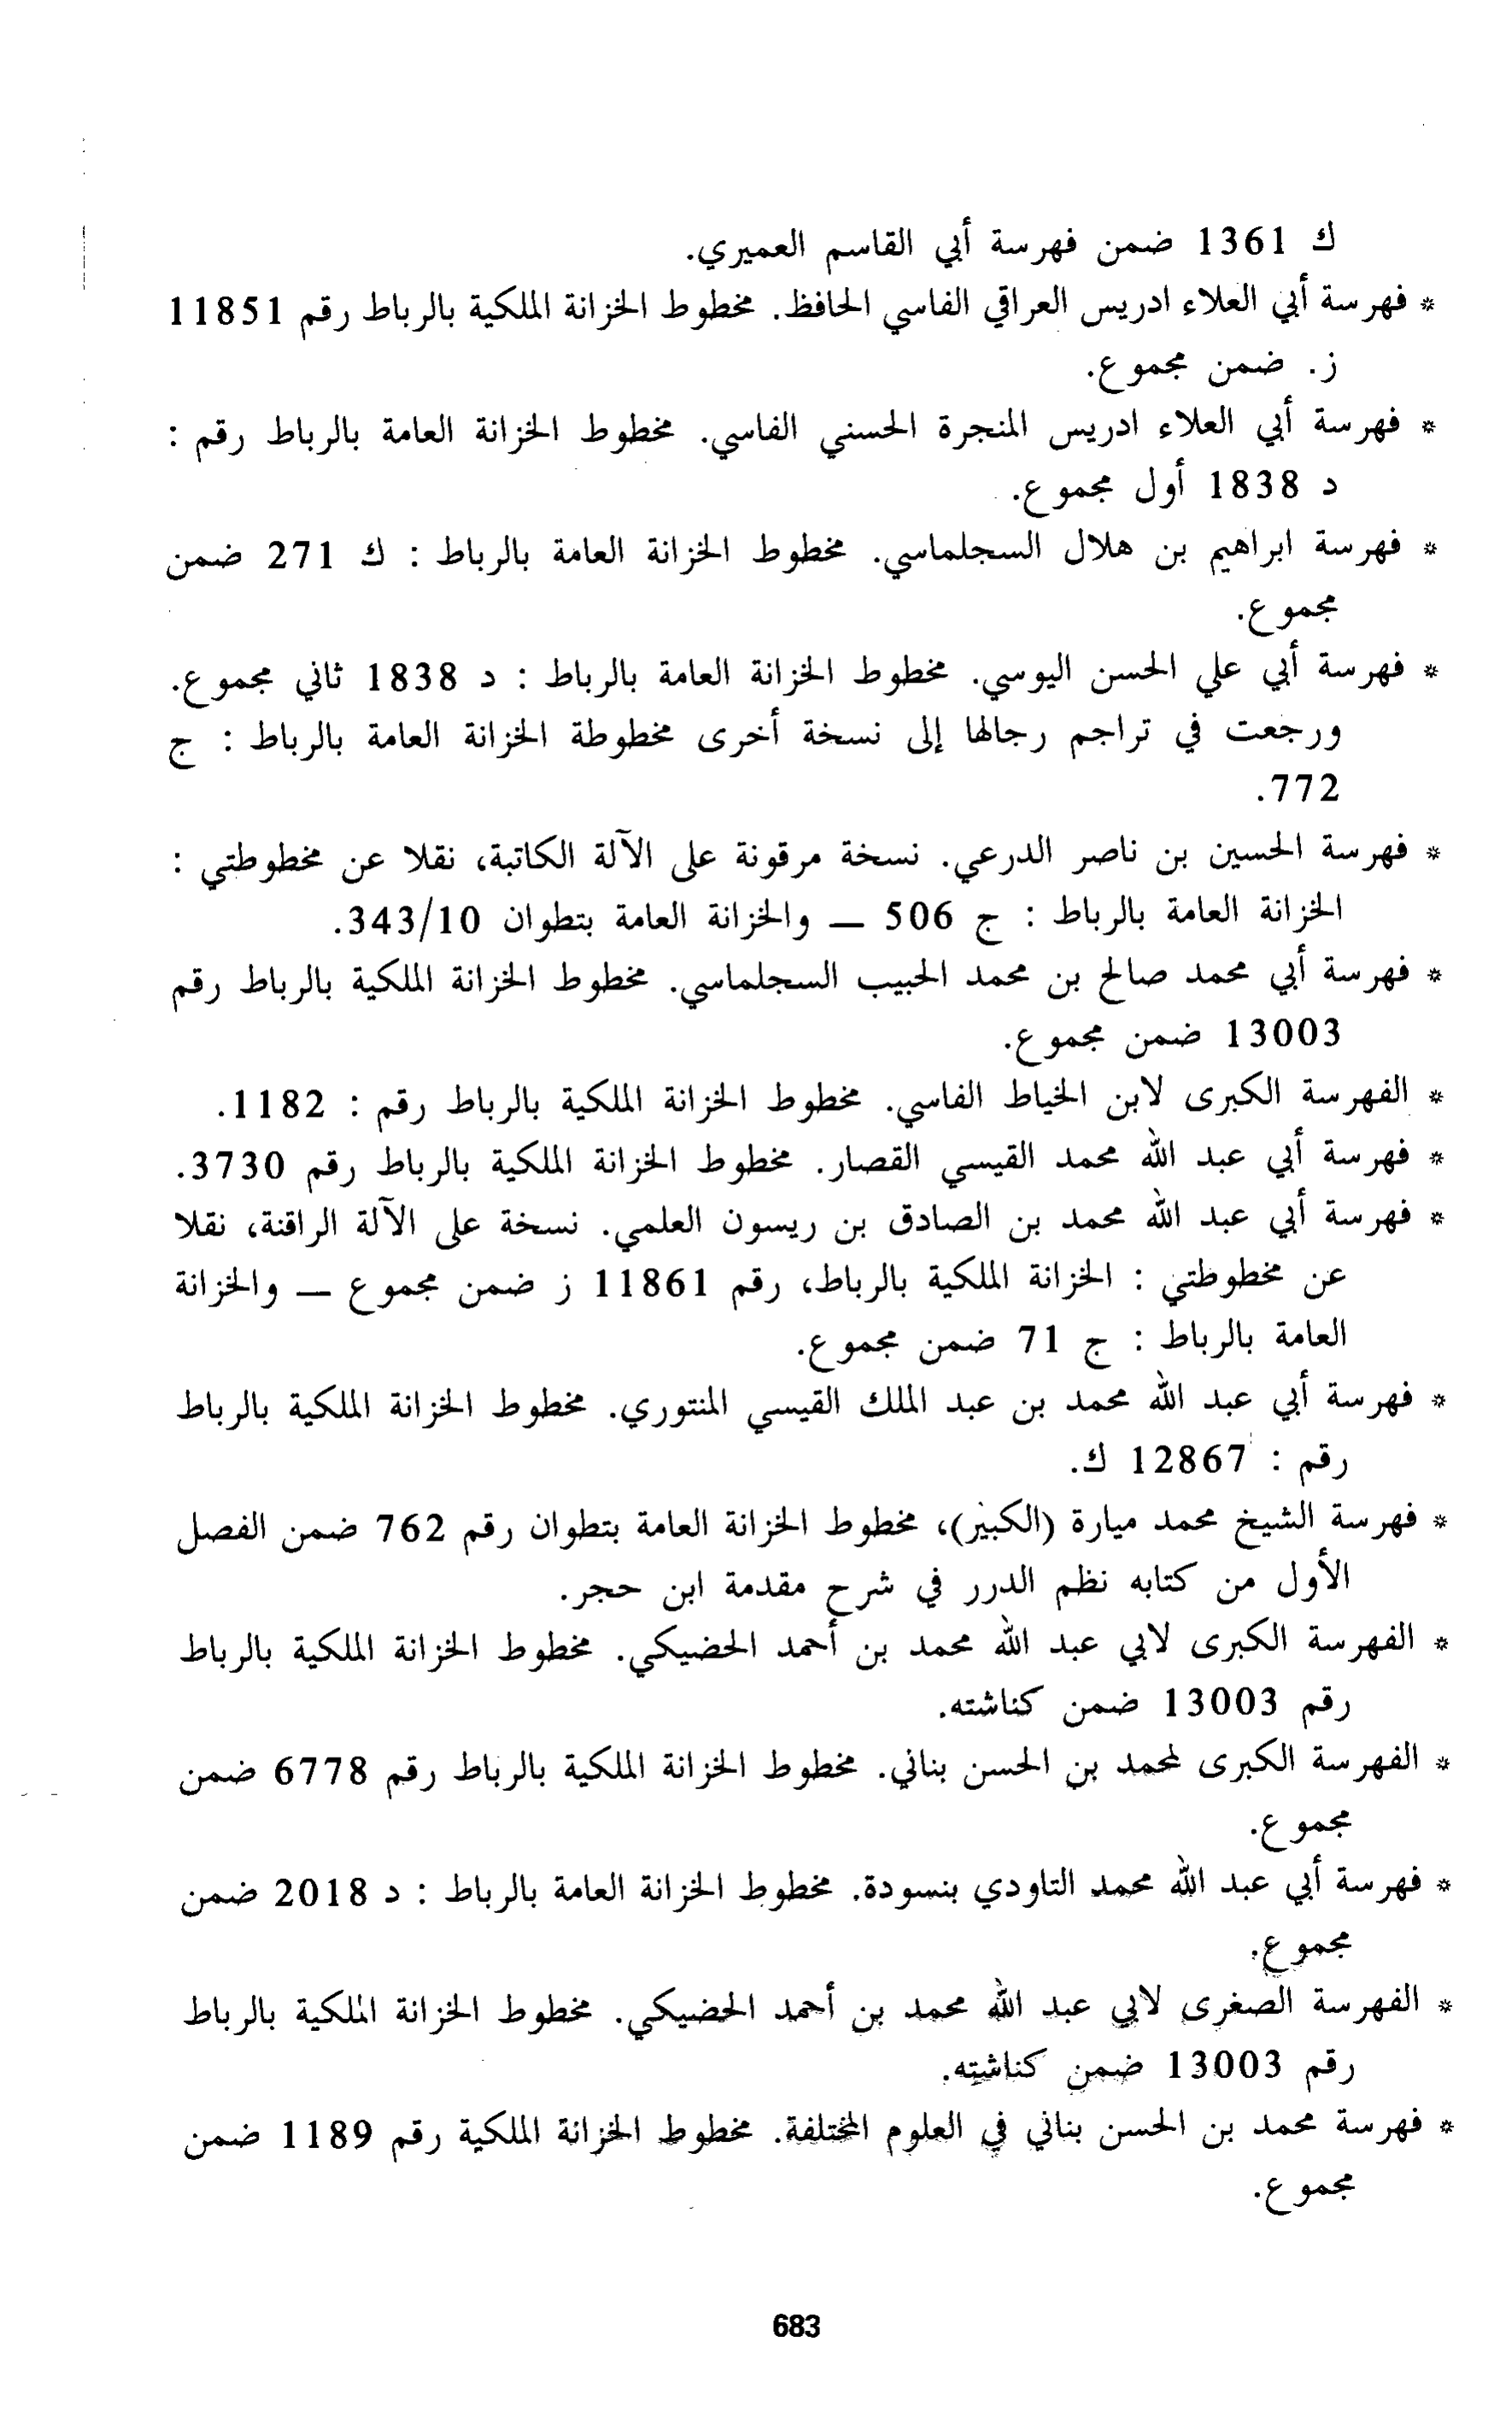 ك 1361 ضمن فهرسة أبي القاسم العميري.
* فهرسة أبي العلاء ادريس العراقي الفاسي الحافظ. مخطوط الخزانة الملكية بالرباط رقم 11851
ز. ضمن مجموع.
* فهرسة أبي العلاء ادريس المنجرة الحسني الفاسي. مخطوط الخزانة العامة بالرباط رقم :
د 1838 أول مجموع.
* فهرسة ابراهيم بن هلال السجلماسي. مخطوط الخزانة العامة بالرباط : ك 271 ضمن
مجموع.
* فهرسة أبي علي الحسن اليوسي. مخطوط الخزانة العامة بالرباط : د 1838 ثاني مجموع.
ورجعت في تراجم رجالها إلى نسخة أخرى مخطوطة الخزانة العامة بالرباط : ج
772.
* فهرسة الحسين بن ناصر الدرعي. نسخة مرقونة على الآلة الكاتبة، نقلا عن مخطوطتي :
الخزانة العامة بالرباط : ج 506 — والخزانة العامة بتطوان 343/10.
* فهرسة أبي محمد صالح بن محمد الحبيب السجلماسي. مخطوط الخزانة الملكية بالرباط رقم
13003 ضمن مجموع.
* الفهرسة الكبرى لابن الخياط الفاسي. مخطوط الخزانة الملكية بالرباط رقم : 1182.
* فهرسة أبي عبد الله محمد القيسي القصار. مخطوط الخزانة الملكية بالرباط رقم 3730.
* فهرسة أبي عبد الله محمد بن الصادق بن ريسون العلمي. نسخة على الآلة الراقنة، نقلا
عن مخطوطتي : الخزانة الملكية بالرباط، رقم 11861 ز ضمن مجموع — والخزانة
العامة بالرباط : ج 71 ضمن مجموع.
* فهرسة أبي عبد الله محمد بن عبد الملك القيسي المنتوري. مخطوط الخزانة الملكية بالرباط
رقم : 12867 ك.
* فهرسة الشيخ محمد ميارة (الكبير)، مخطوط الخزانة العامة بتطوان رقم 762 ضمن الفصل
الأول من كتابه نظم الدرر في شرح مقدمة ابن حجر.
* الفهرسة الكبرى لابي عبد الله محمد بن أحمد الحضيكي. مخطوط الخزانة الملكية بالرباط
رقم 13003 ضمن كناشته.
* الفهرسة الكبرى لمحمد بن الحسن بناني. مخطوط الخزانة الملكية بالرباط رقم 6778 ضمن
مجموع.
* فهرسة أبي عبد الله محمد التاودي بنسودة. مخطوط الخزانة العامة بالرباط : د 2018 ضمن
مجموع.
* الفهرسة الصغرى لابي عبد الله محمد بن أحمد الحضيكي. مخطوط الخزانة الملكية بالرباط
رقم 13003 ضمن كناشته.
* فهرسة محمد بن الحسن بناني في العلوم المختلفة. مخطوط الخزانة الملكية رقم 1189 ضمن
مجموع.
683